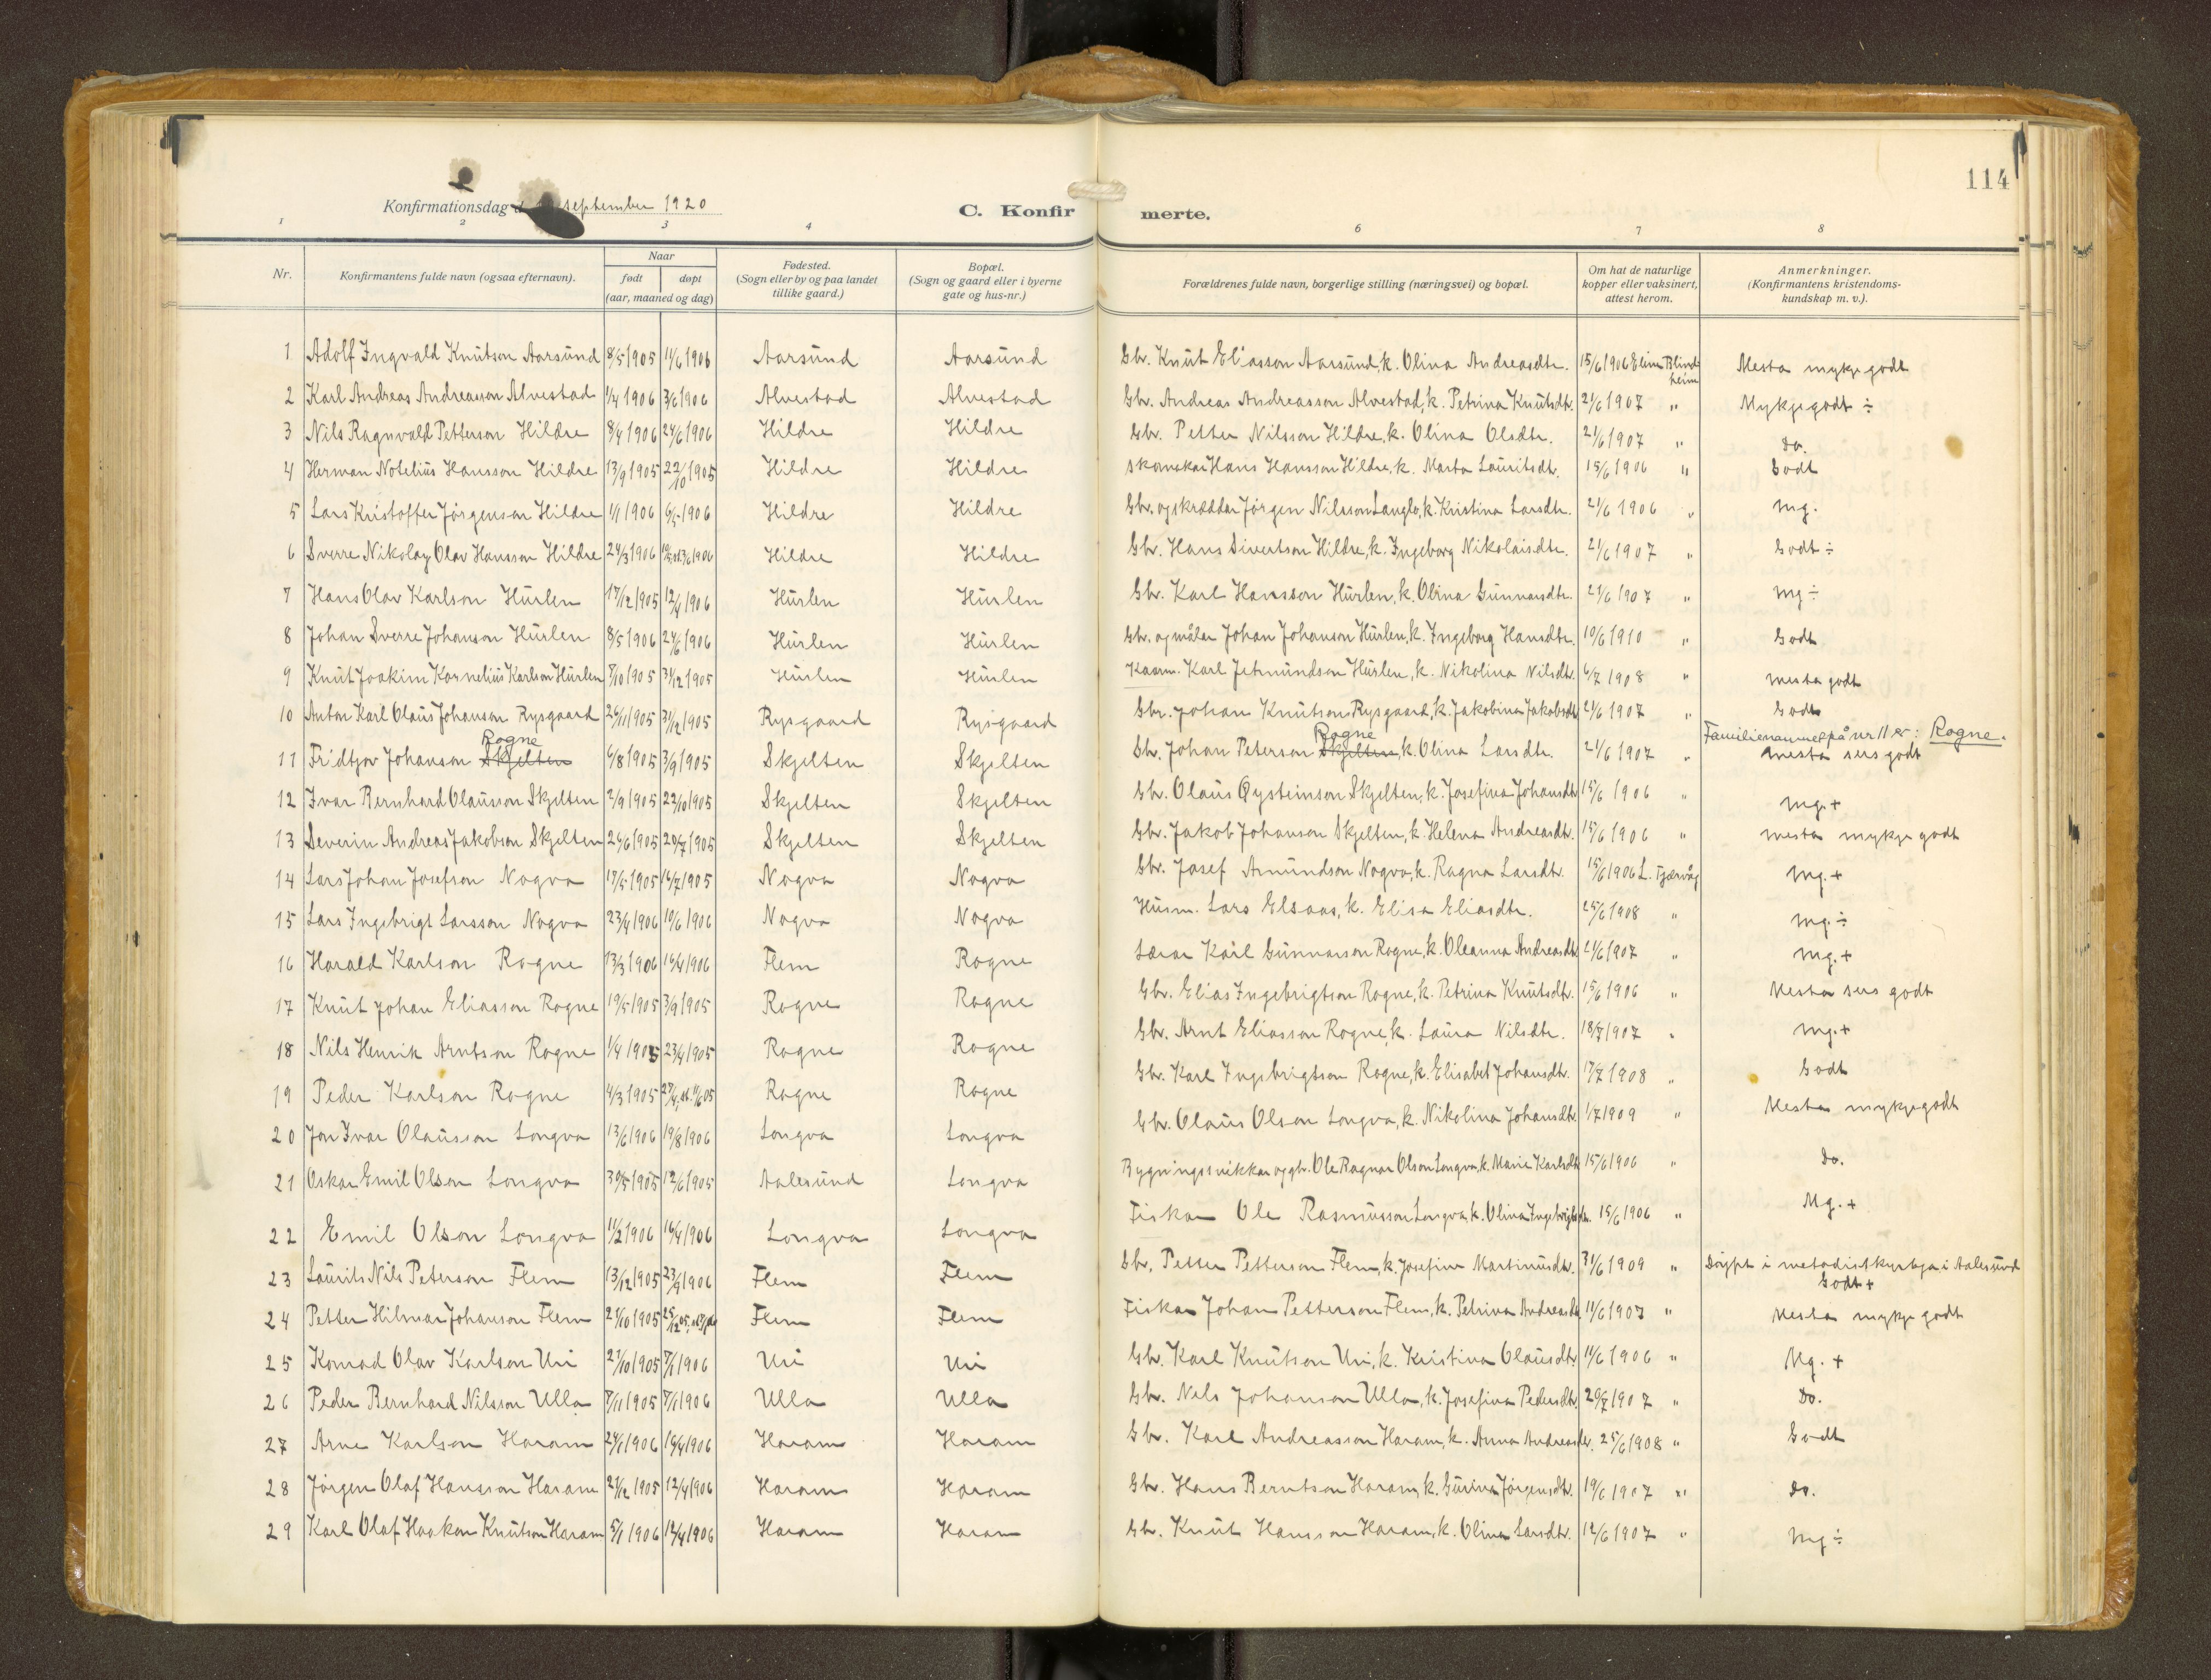 114
Konfirmationsdag d. september 1920
C. Konfirmerte.
1 2 3 4 6 7 8
Nr. Konfirmantens fulde navn (ogsaa efternavn). Naar født døpt (aar, maaned og dag) Fødested. (Sogn eller by og paa landet tillike gaard.) Bopæl. (Sogn og gaard eller i byerne gate og hus-nr.) Forældrenes fulde navn, borgerlige stilling (næringsvei) og bopæl. Om hat de naturlige kopper eller vaksinert, attest herom. Anmerkninger. (Konfirmantens kristendomskundskap m. v.).
1 Adolf Ingvald Knutson Aarsund 8/5 1905 11/6 1906 Aarsund Aarsund Gbr. Knut Eliasson Aarsund, k. Olina Andreasdtr. 15/6 1906 Elias Blindheim Mesta mykje godt
2 Karl Andreas Andreasson Alvestad 1/4 1906 3/6 1906 Alvestad Alvestad Gbr. Andreas Andreasson Alvestad, k. Petrina Knutsdtr. 21/6 1907 " Mykje godt ÷
3 Nils Ragnvald Petterson Hildre 8/4 1906 24/6 1906 Hildre Hildre Gbr. Petter Nilsson Hildre, k. Olina Olsdtr. 21/6 1907 " do.
4 Herman Notelius Hansson Hildre 13/9 1905 22/10 1905 Hildre Hildre Skomakar Hans Hansson Hildre, k. Marta Lauritsdtr. 15/6 1906 " Godt
5 Lars Kristoffer Jørgenson Hildre 1/1 1906 6/5 1906 Hildre Hildre Gbr. og skrædder Jørgen Nilsson Langlo, k. Kristina Larsdtr. 21/6 1906 " mg.
6 Sverre Nikolay Olav Hansson Hildre 24/3 1906 Hildre Hildre Gbr. Hans Sivertson Hildre, k. Ingeborg Nikolaisdtr. 21/6 1907 " Godt ÷
7 Hans Olav Karlson Hurlen 17/12 1905 12/4 1906 Hurlen Hurlen Gbr. Karl Hansson Hurlen, k. Olina Gunnarsdtr. 21/6 1907 " mg ÷
8 Johan Sverre Johanson Hurlen 8/5 1906 24/6 1906 Hurlen Hurlen Gbr. og målar Johan Johanson Hurlen, k. Ingeborg Hansdtr. 10/6 1910 " Godt
9 Knut Joakim Kornelius Karlson Hurlen 8/10 1905 31/12 1905 Hurlen Hurlen Kaarm. Karl Jetmundson Hurlen, k. Nikolina Nilsdtr. 6/7 1908 " mesta godt
10 Anton Karl Olaus Johanson Rysgaard 26/11 1905 31/12 1905 Rysgaard Rysgaard Gbr. Johan Knutson Rysgaard, k. Jakobina Jakobsdtr. 21/6 1907 " Godt
Rogne Rogne Familienavnet på nr 11 er: Rogne.
11 Fridtjov Johanson Skjelten 6/8 1905 3/9 1905 Skjelten Skjelten Gbr. Johan Peterson Skjelten, k. Olina Larsdtr. 21/6 1907 " mesta sers godt
12 Ivar Bernhard Olausson Skjelten 2/9 1905 22/10 1905 Skjelten Skjelten Gbr. Olaus Øysteinson Skjelten, k. Josefina Johansdtr. 15/6 1906 " mg. +
13 Severin Andreas Jakobson Skjelten 24/6 1905 20/7 1905 Skjelten Skjelten Gbr. Jakob Johanson Skjelten, k. Helena Andreasdtr. 15/6 1906 " mesta mykje godt
14 Lars Johan Josefson Nogva 17/5 1905 16/7 1905 Nogva Nogva Gbr. Josef Amundson Nogva, k. Ragna Larsdtr. 15/6 1906 L. Tjærvåg mg. +
15 Lars Ingebrigt Larsson Nogva 23/4 1906 10/6 1906 Nogva Nogva Husm. Lars Elsaas, k. Elisa Eliasdtr. 25/6 1908 " mg. ÷
16 Harald Karlson Rogne 13/3 1906 16/4 1906 Flem Rogne Lærar Karl Gunnarson Rogne, k. Oleanna Andreasdtr. 21/6 1907 " mg. +
17 Knut Johan Eliasson Rogne 19/5 1905 3/9 1905 Rogne Rogne Gbr. Elias Ingebrigtson Rogne, k. Petrina Knutsdtr. 15/6 1906 " Mesta sers godt
18 Nils Henrik Arntson Rogne 1/4 1905 23/4 1905 Rogne Rogne Gbr. Arnt Eliasson Rogne, k. Laura Nilsdtr. 18/7 1907 " mg. +
19 Peder Karlson Rogne 4/3 1905 Rogne Rogne Gbr. Karl Ingebrigtson Rogne, k. Elisabet Johansdtr. 17/7 1908 " Godt
20 Jon Ivar Olausson Longva 13/6 1906 19/8 1906 Longva Longva Gbr. Olaus Olson Longva, k. Nikolina Johansdtr. 1/7 1909 " Mesta mykje godt
21 Oskar Emil Olson Longva 30/5 1905 12/6 1905 Aalesund Longva Bygningssnikkar og gbr. Ole Ragnar Olson Longva, k. Marie Karlsdtr. 15/6 1906 " do.
22 Emil Olson Longva 11/2 1906 16/4 1906 Longva Longva Fiskar Ole Rasmusson Longva, k. Olina Ingebrigtsdtr. 15/6 1906 " Mg. +
23 Laurits Nils Peterson Flem 13/12 1905 23/9 1906 Flem Flem Gbr. Petter Petterson Flem, k. Josefine Martinusdtr. 31/6 1909 " Døypt i metodistkyrkja i Aalesund Godt +
24 Petter Hilmar Johanson Flem 21/10 1905 Flem Flem Fiskar Johan Petterson Flem, k. Petrina Andreasdtr. 11/6 1907 " Mesta mykje godt
25 Konrad Olav Karlson Uri 27/10 1905 7/1 1906 Uri Uri Gbr. Karl Knutson Uri, k. Kristina Olausdtr. 11/6 1906 " Mg. +
26 Peder Bernhard Nilsson Ulla 8/11 1905 7/1 1906 Ulla Ulla Gbr. Nils Johanson Ulla, k. Josefina Pedersdtr. 20/7 1907 " Do.
27 Arne Karlson Haram 24/1 1906 16/4 1906 Haram Haram Gbr. Karl Andreasson Haram, k. Anna Andreasdtr. 25/6 1908 " Godt
28 Jørgen Olaf Hansson Haram 21/12 1905 12/4 1906 Haram Haram Gbr. Hans Berntson Haram, k. Gurina Jørgensdtr. 19/6 1907 " do.
29 Karl Olaf Haakon Knutson Haram 5/1 1906 12/4 1906 Haram Haram Gbr. Knut Hansson Haram, k. Olina Larsdtr. 12/6 1907 " Mg ÷